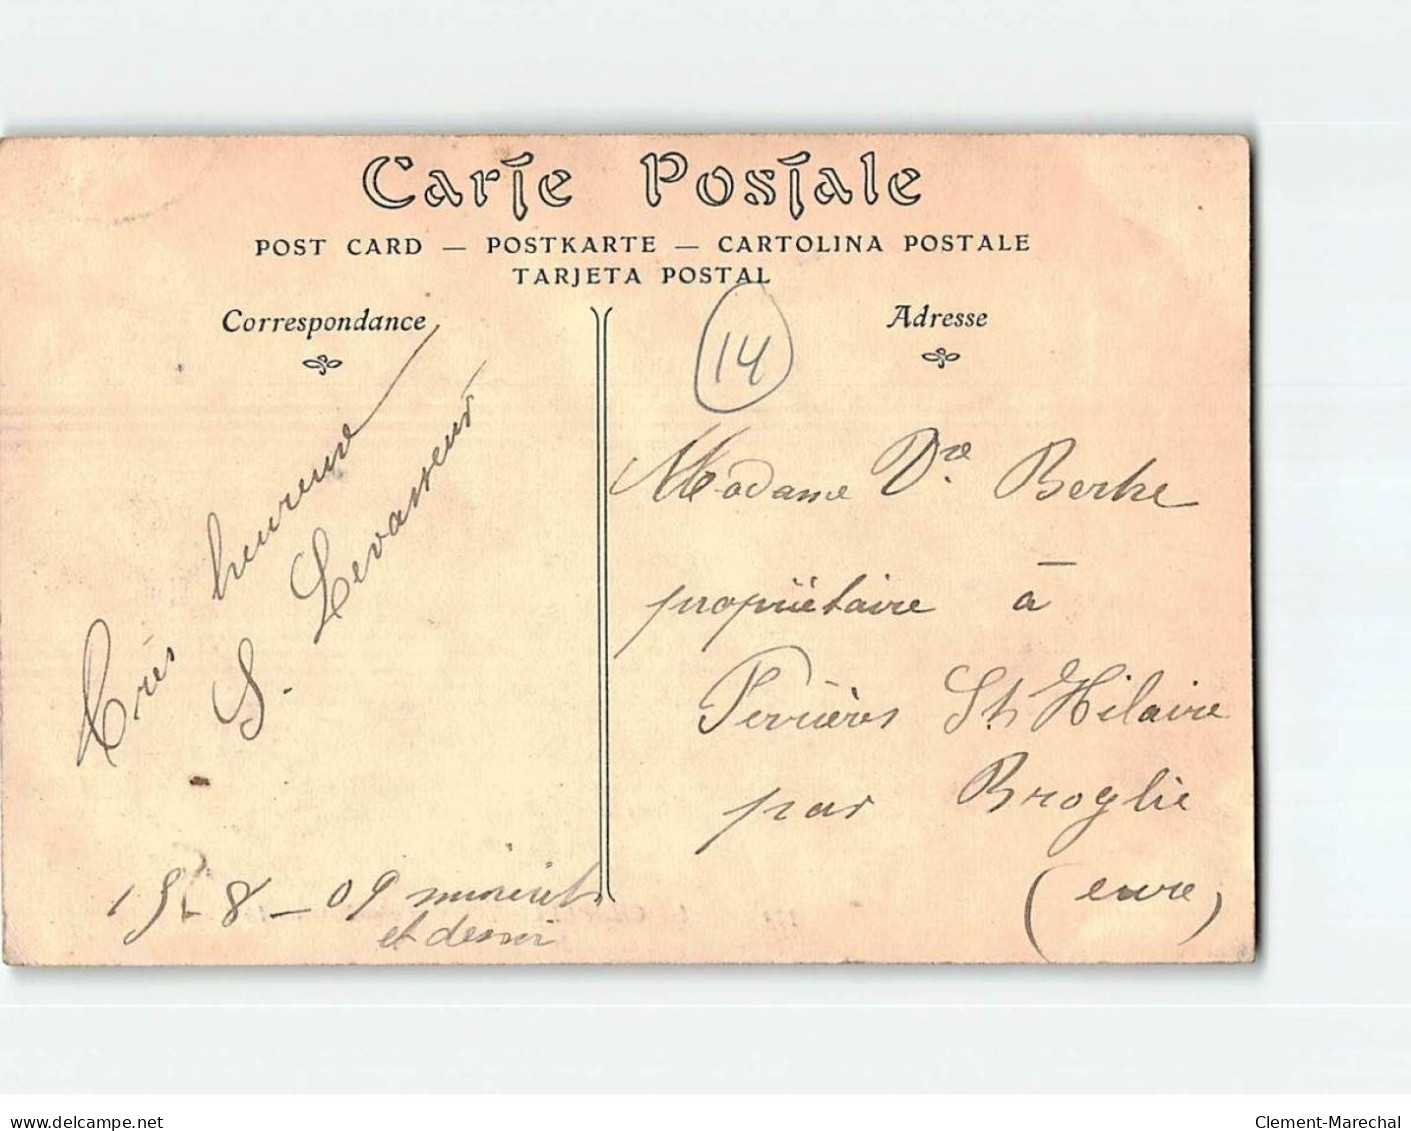 Carte Postale
POST CARD — POSTKARTE — CARTOLINA POSTALE
TARJETA POSTAL
Correspondance
Adresse
14
Très heureuse
S. Levasseur
15-8-09 minuit
et demi
Madame Vve Berthe
propriétaire à
Ferrières St Hilaire
par Broglie
(eure)
www.delcampe.net
Clement-Marechal